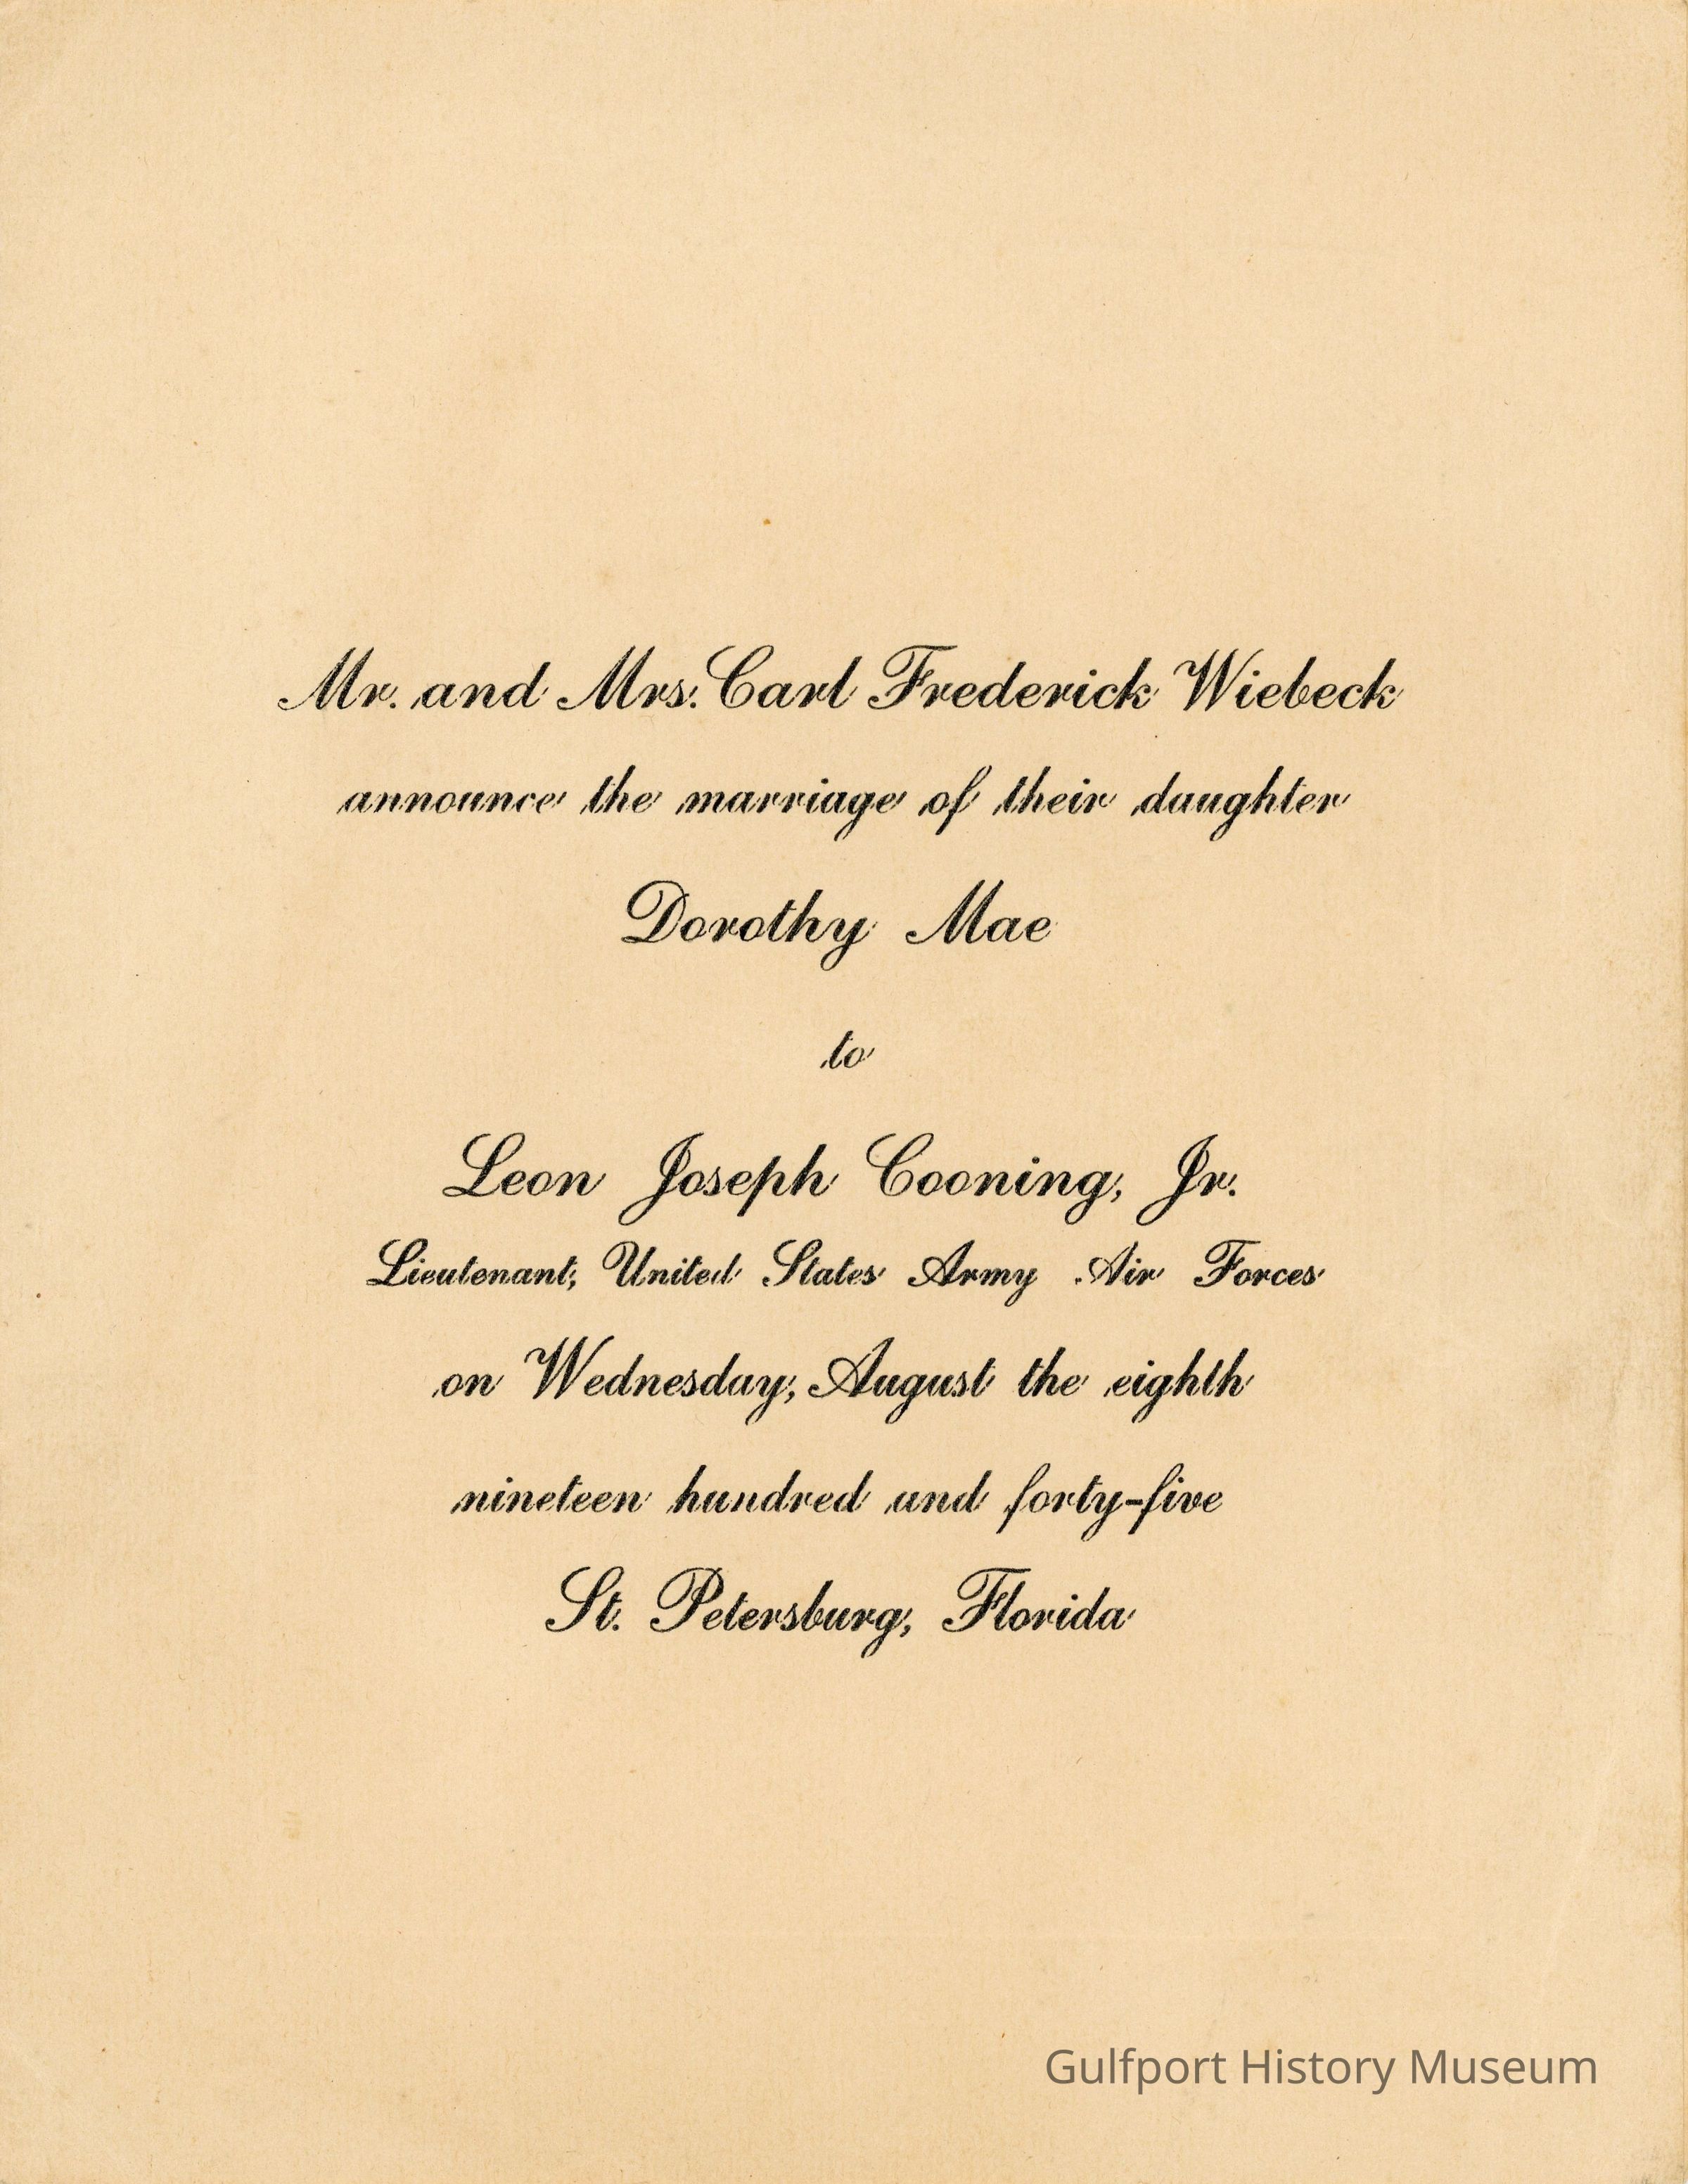 Mr. and Mrs. Carl Frederick Wiebeck
announce the marriage of their daughter
Dorothy Mae
to
Leon Joseph Cooning, Jr.
Lieutenant, United States Army Air Forces
on Wednesday, August the eighth
nineteen hundred and forty-five
St. Petersburg, Florida
Gulfport History Museum